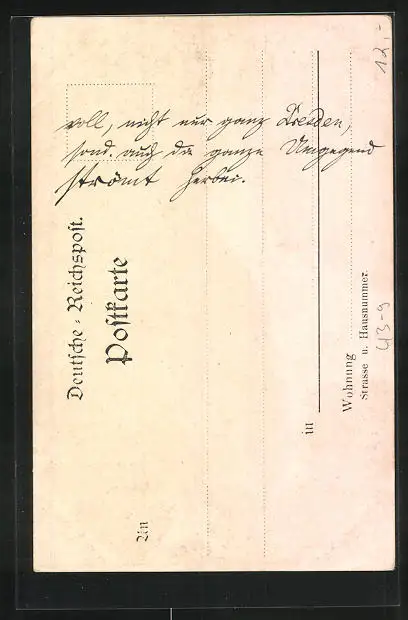 voll, nicht nur ganz Dresden,
sond. auch die ganze Umgegend
strömt herbei.
Deutsche Reichspost.
Postkarte
An
in
Wohnung
Strasse u. Hausnummer.
12,-
43-9